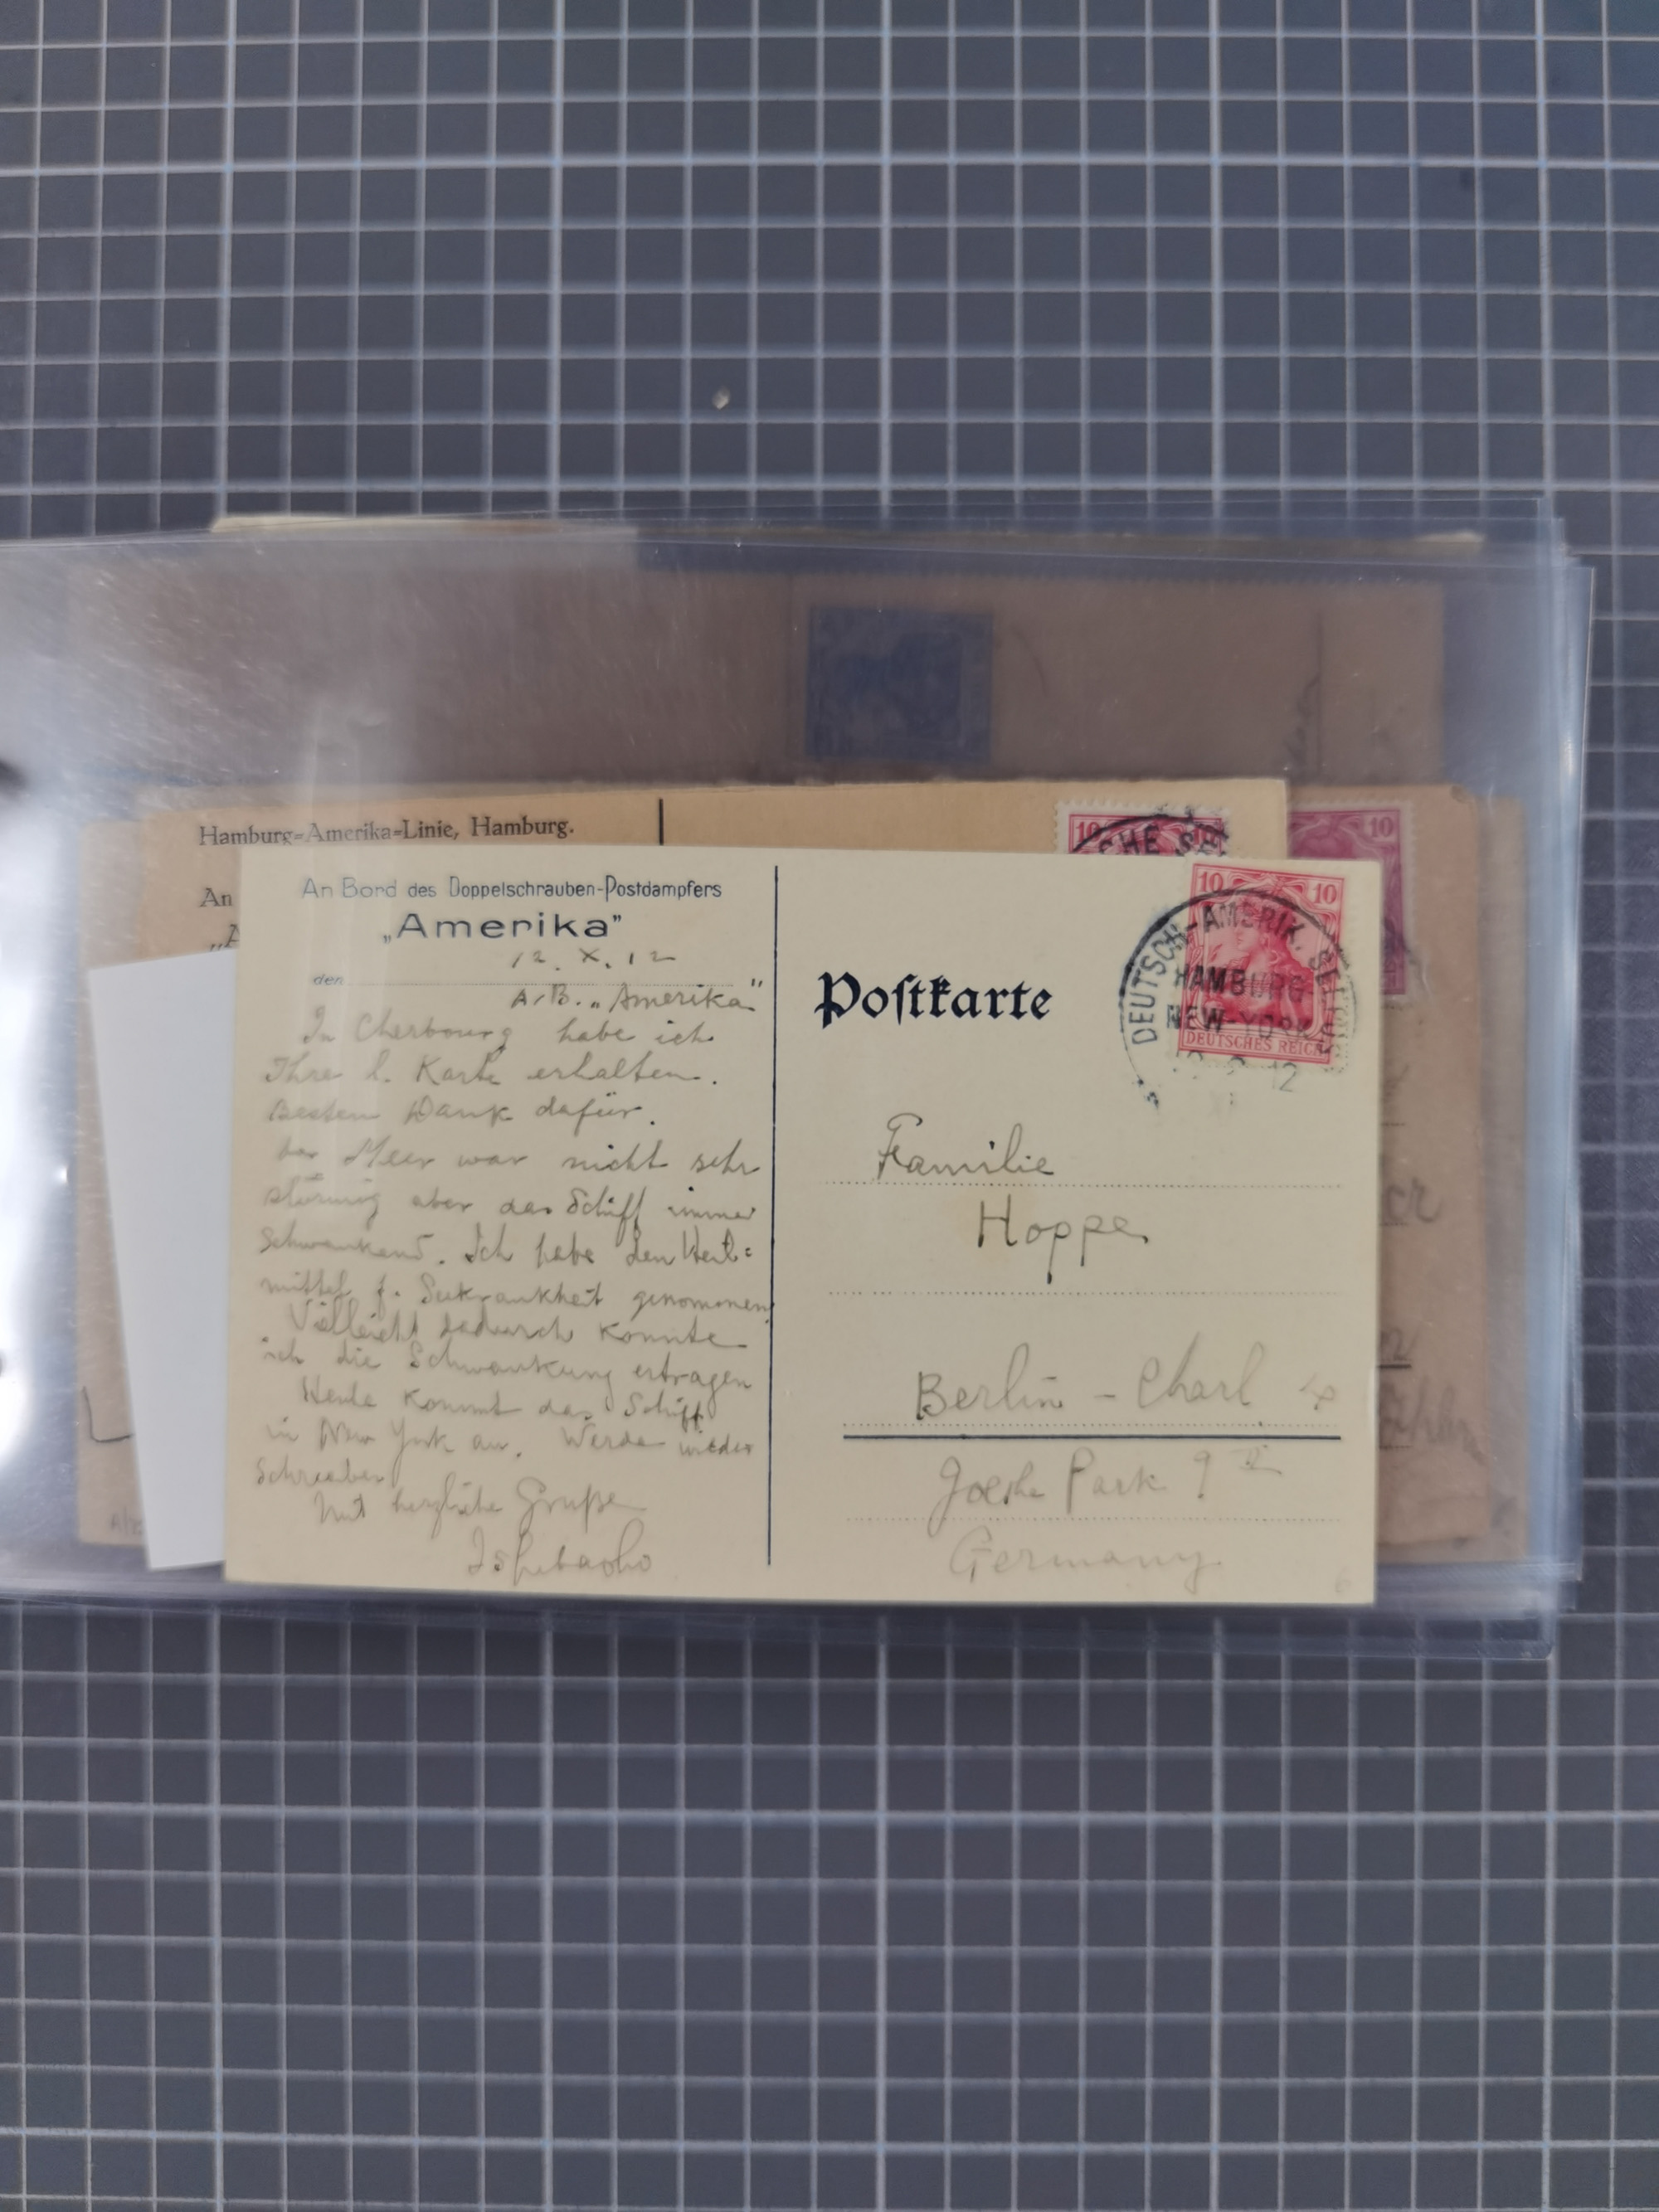 Hamburg-Amerika-Linie, Hamburg.
An
"A
10
CHE SE
10
An Bord des Doppelschrauben-Postdampfers
„Amerika”
den 12. X. 12
A.B. „Amerika”
In Cherbourg habe ich
Ihre l. Karte erhalten.
Besten Dank dafür.
Das Meer war nicht sehr
stürmig aber das Schiff immer
Schwankend. Ich habe den Heil=
mittel f. Seekrankheit genommen
Vielleicht dadurch konnte
ich die Schwankung ertragen
Heute kommt das Schiff
in New York an. Werde wieder
Schreiben
Mit herzliche Grüße
Postkarte
10 10
DEUTSCHES REICH
DEUTSCH-AMERIK. SEEPOST
HAMBURG-
NEW-YORK
12
Familie
Hoppe
Berlin - Charl. 4
Goethe Park 9 II
Germany
6